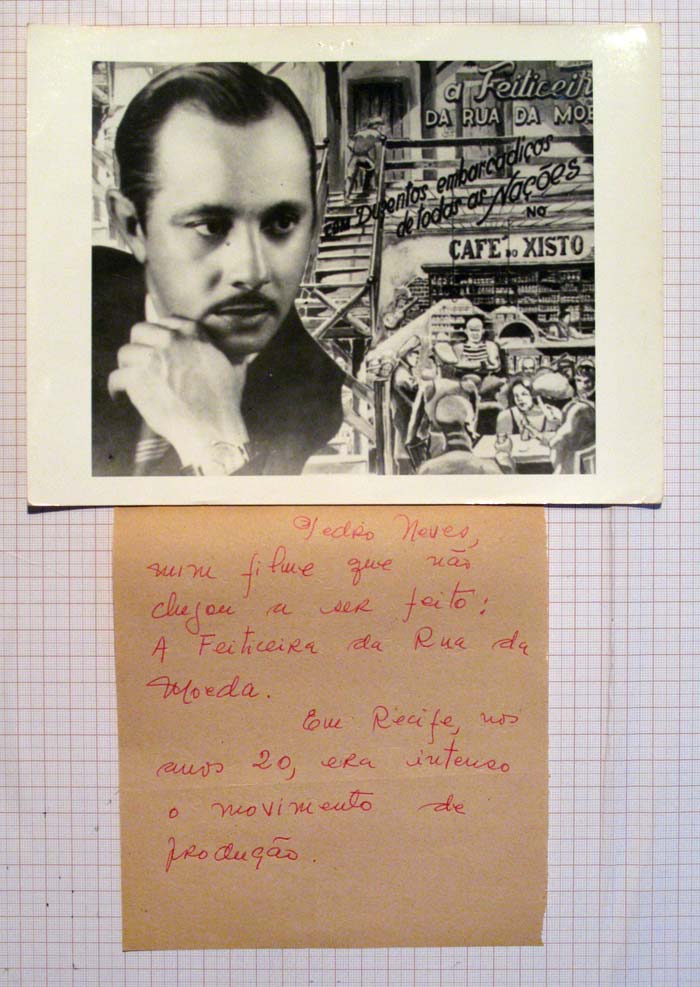 a Feiticeir
DA RUA DA MOE
COM Duzentos embarcadiços
de todas as Nações
NO
CAFÉ DO XISTO
Pedro Neves,
num filme que não
chegou a ser feito:
A Feiticeira da Rua da
Moeda.
Em Recife, nos
anos 20, era intenso
o movimento de
produção.